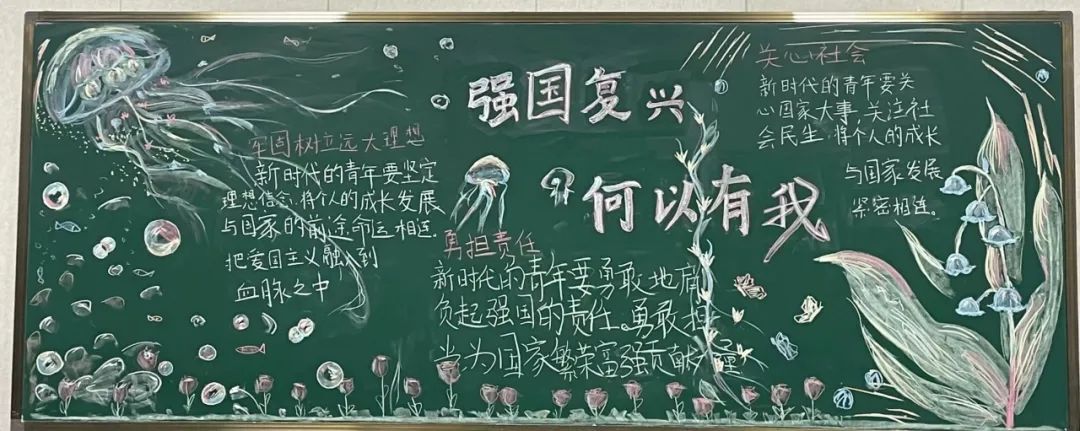 强国复兴
何以有我
牢固树立远大理想
新时代的青年要坚定
理想信念,将个人的成长发展
与国家的前途命运相连.
把爱国主义融入到
血脉之中
勇担责任
新时代的青年要勇敢地肩
负起强国的责任。勇敢担
当为国家繁荣富强贡献力量
关心社会
新时代的青年要关
心国家大事,关注社
会民生,将个人的成长
与国家发展
紧密相连。